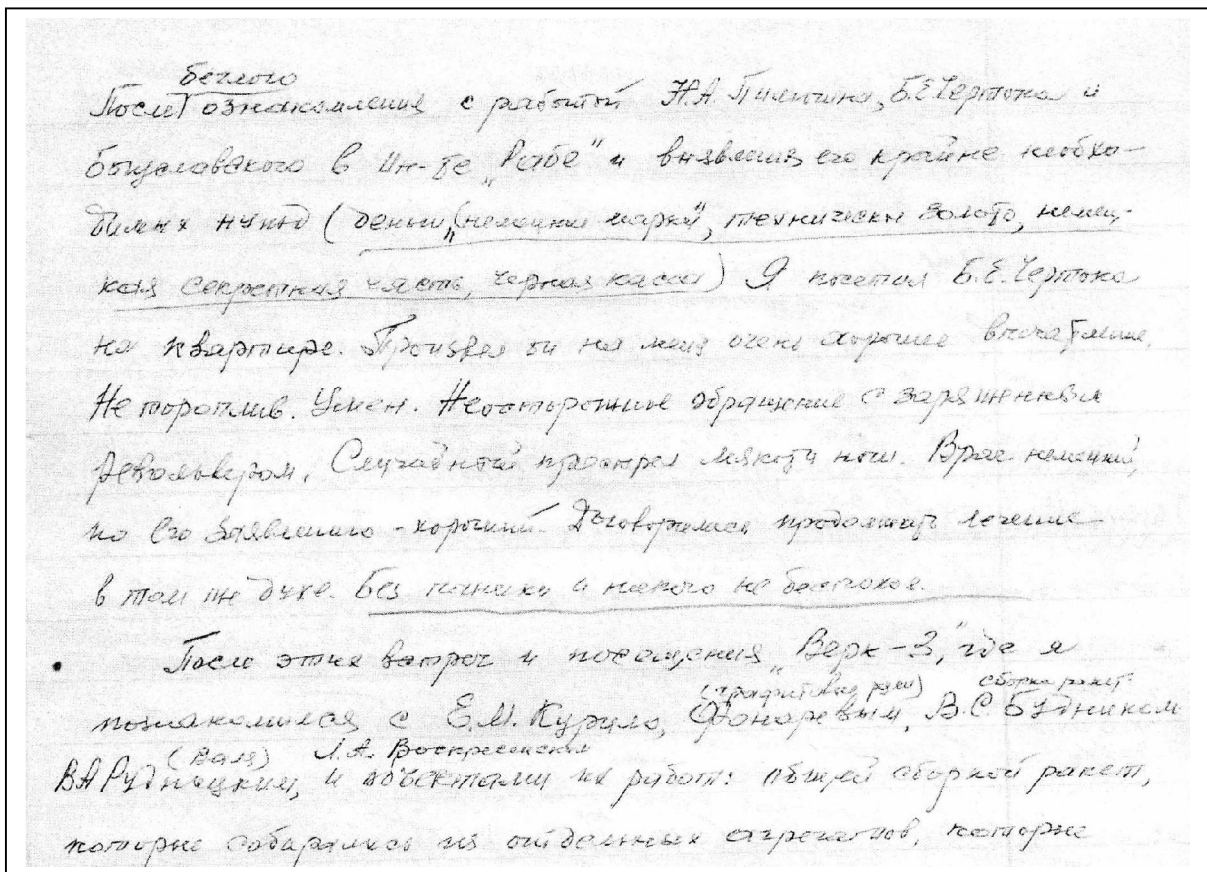 беглого
После ознакомления с работой Н.А. Пилюгина, Б.Е. Чертока и
Богуславского в Ин-те „Рабе" и выявления его крайне необхо-
димых нужд (деньги „немецкие марки", технически золото, немец-
кая секретная часть, черная касса) Я посетил Б.Е. Чертока
на квартире. Произвел он на меня очень хорошее впечатление.
Не тороплив. Умен. Неосторожное обращение с заряженным
револьвером. Случайный прострел мякоти ноги. Врач немецкий,
по его заявлению - хороший. Договорились продолжить лечение
в том же духе. Без паники и никого не беспокоя.
После этих встреч и посещения „Верк-3", где я
(графитовые рули) сборка ракет
познакомился с Е.М. Курило, Фонаревым, В.С. Будником
(Валя) Л.А. Воскресенским
В.А. Рудницким, и объектами их работ: общей сборкой ракет,
которые собирались из отдельных агрегатов, которые